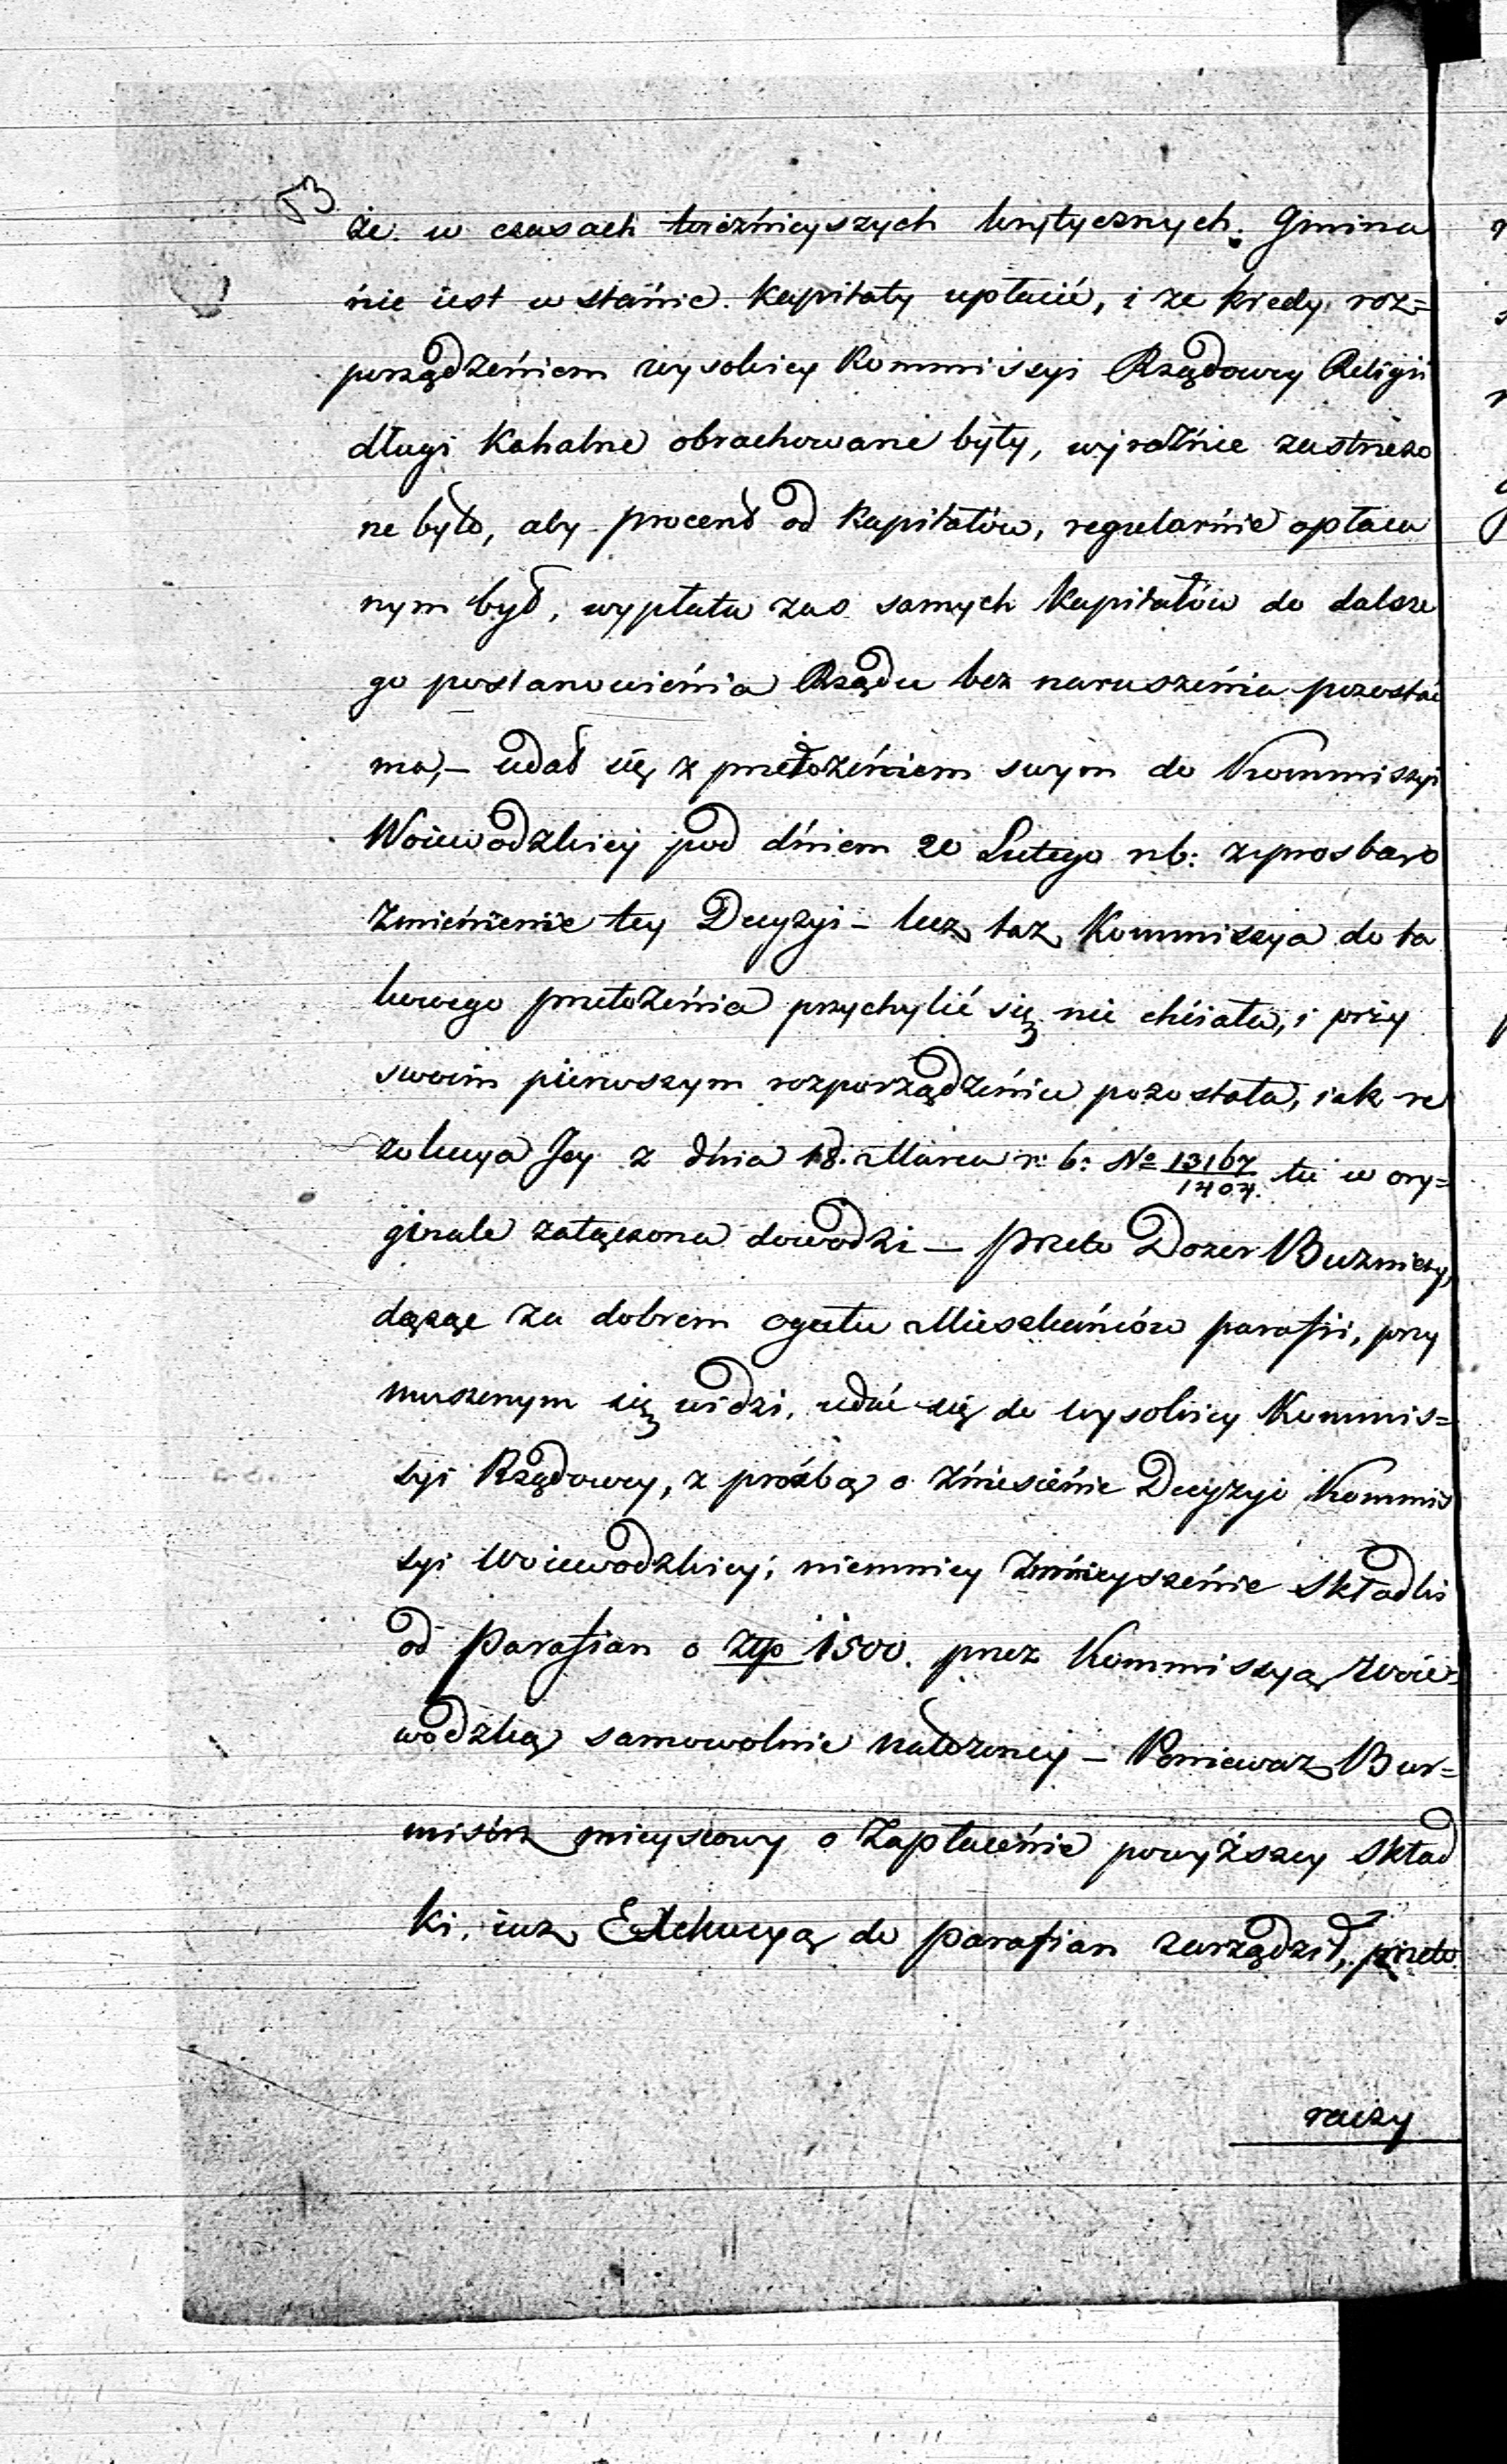 53
że w czasach teraźnieyszych krytycznych. Gmina
nie iest w stanie kapitały upłacić, i ze kiedy roz=
porządzeniem wysokiey Kommissyi Rządowey Religii
długi Kahalne obrachowane były, wyraźnie zastrzeżo
ne było, aby procent od kapitałów, regularnie opłaca
nym był, wypłata zas samych Kapitałów do dalsze
go postanowienia Rządu bez naruszenia pozostać
ma,— udał się z przełożeniem swym do Kommissyi
Woiewodzkiey pod dniem 20 Lutego rb: z prosbą o
zmienienie tey Decyzyi — lecz taz Kommissya do ta
kowego przełożenia przychylić się nie chciała, i przy
swoim pierwszym rozporządzeniu pozostała, iak re
zolucya Jey z dnia 18. Marca r: b: No 13167/1707. tu w ory=
ginale załączona dowodzi — przeto Dozor Bużniczy,
dążąc za dobrem ogułu Mieszkańców parafii, przy
muszonym się widzi, udać się do wysokiey Kommis=
syi Rządowey, z prośbą o zniesienie Decyzyi Kommis
syi Woiewodzkiey, niemniey zmnieyszenie Składki
od Parafian o złp 1500. przez Kommissyą Woie=
wodzką samowolnie nałożoney — Ponieważ Bur=
mistrz mieyscowy o zapłacenie powyższey Skład
ki, iuz Exekucyą do parafian zarządził, przeto
raczy